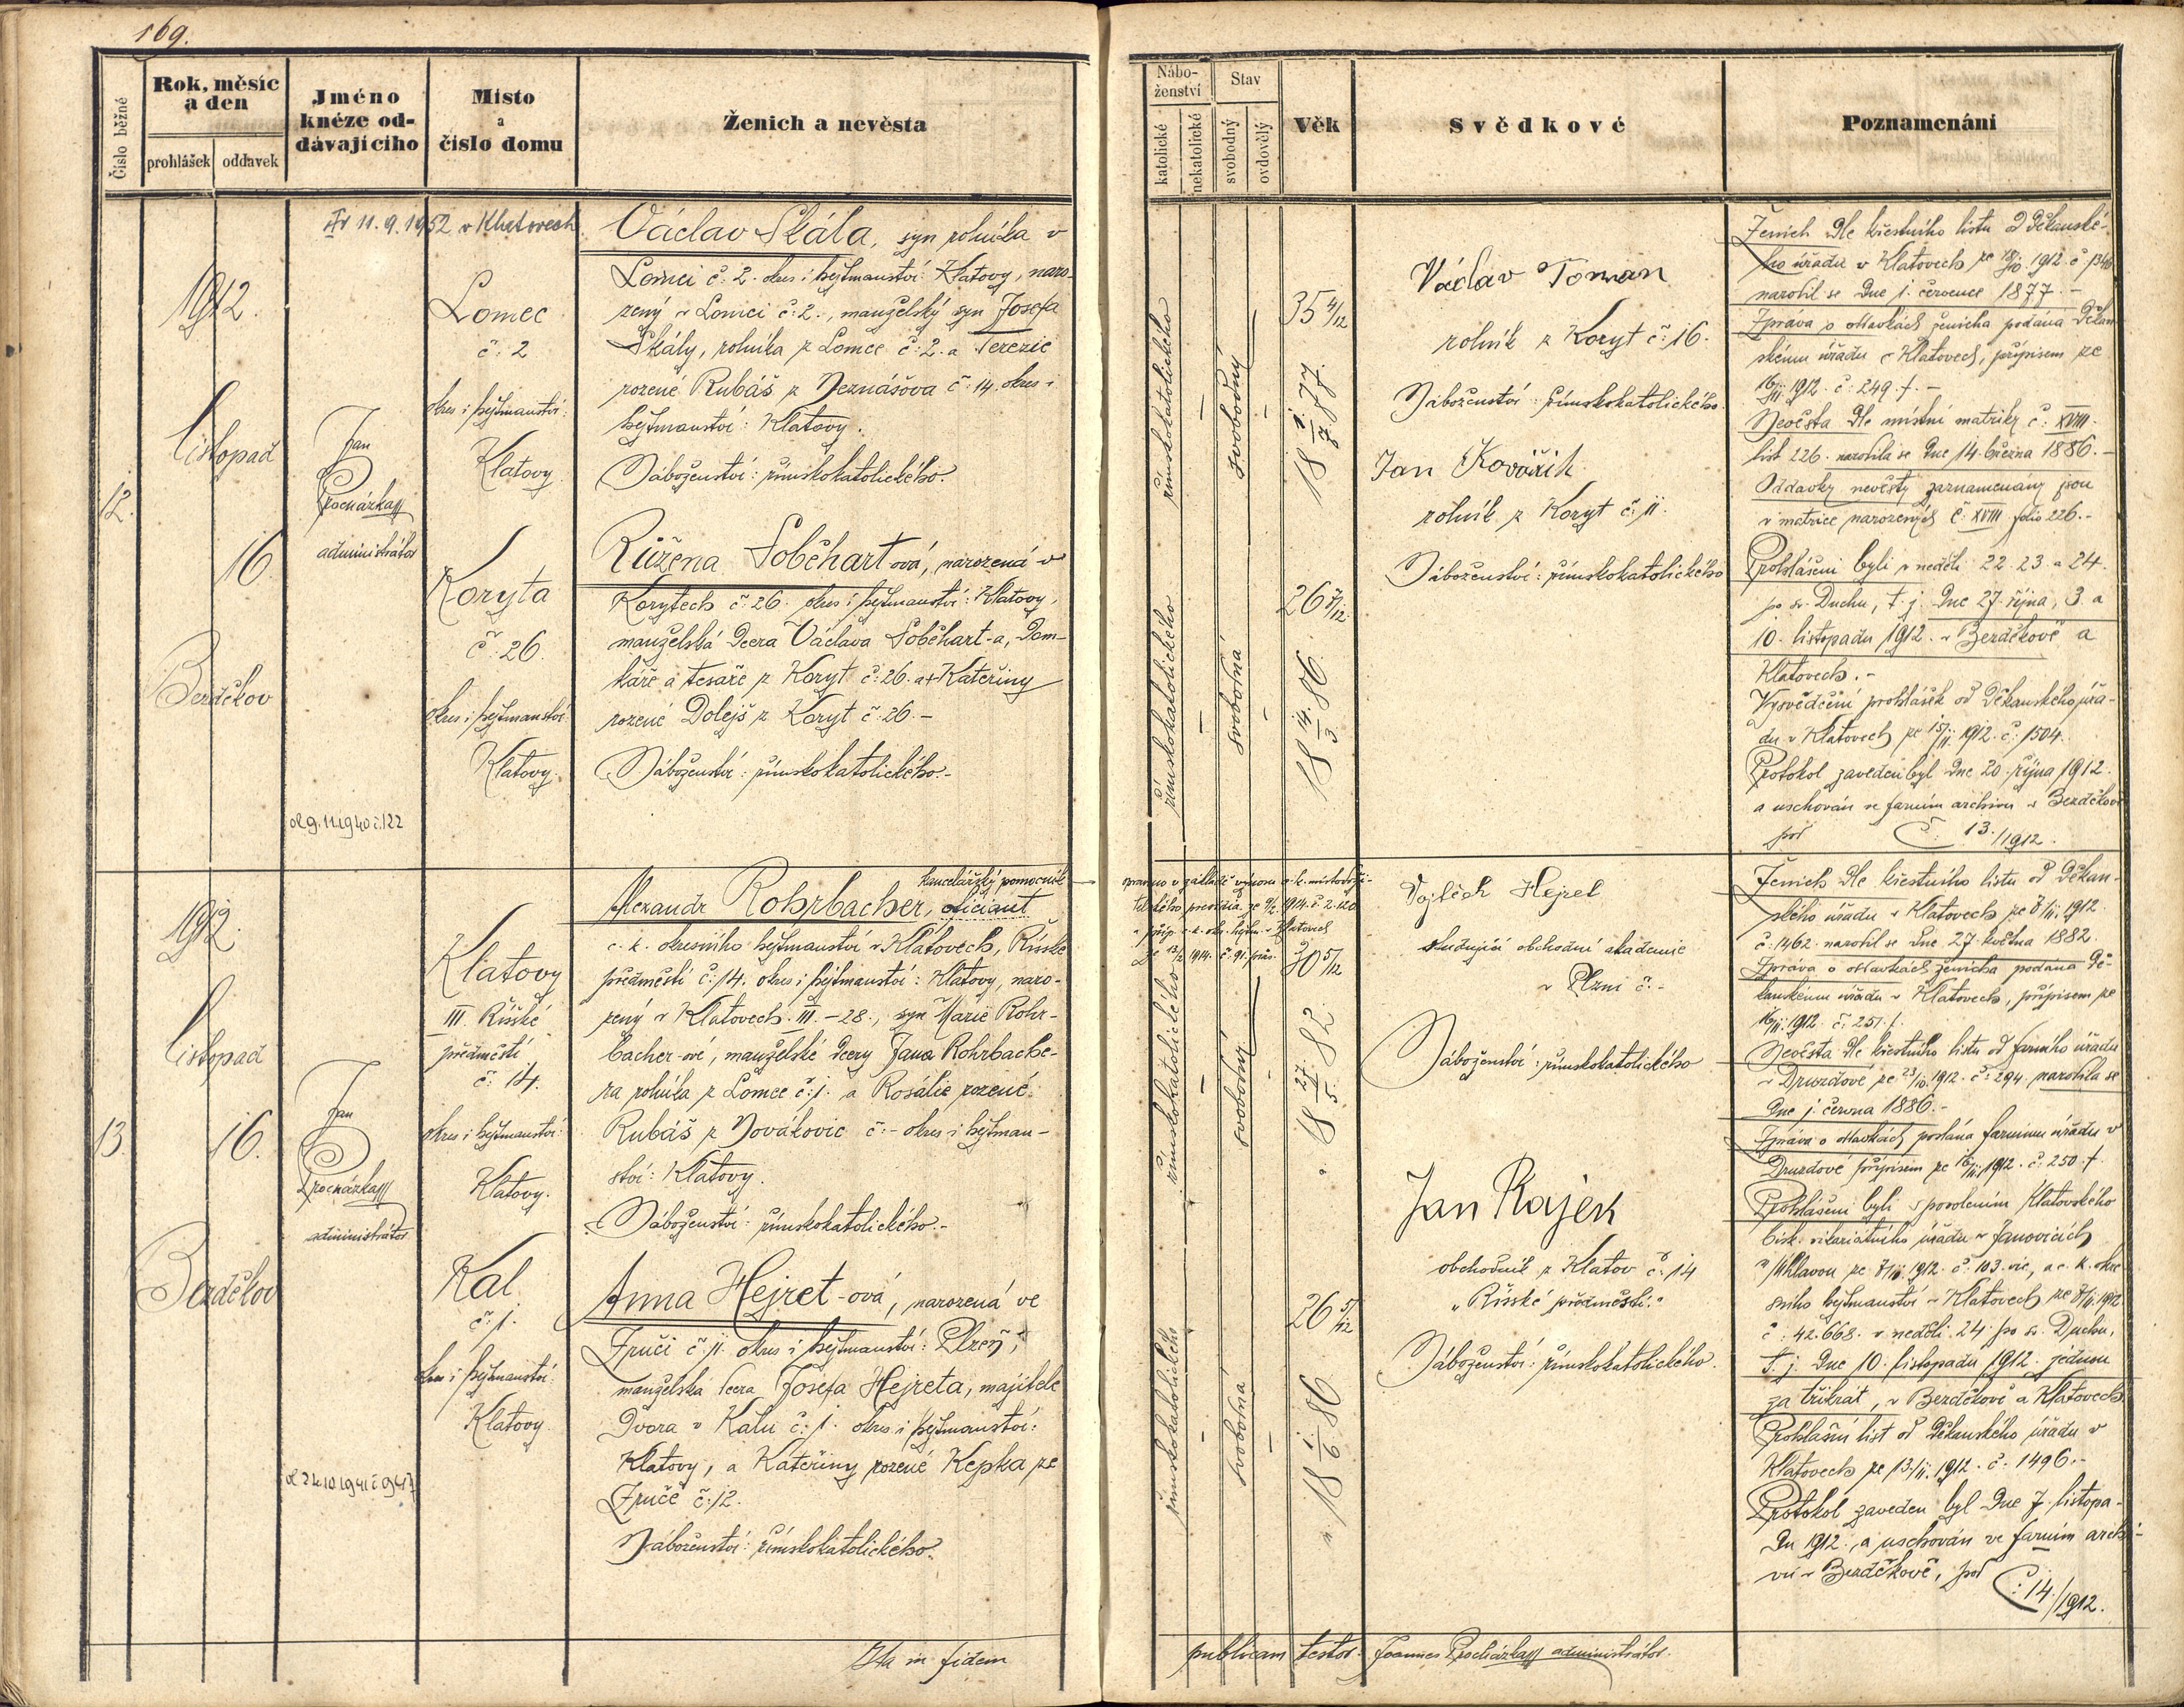 169.
Číslo běžné
Rok, měsíc
a den
prohlášek
oddavek
Jméno
knéze od-
dávajícího
Místo
a
číslo domu
Ženich a nevěsta
12.
1912.
listopad
16.
Bezděkov
Jan
Procházka
administrátor
11. 9. 1952 v Klatovech
Lomec
č. 2
okres i hejtmanství:
Klatovy
Koryta
č. 26.
okres i hejtmanství:
Klatovy.
9. 11. 1940 č. 122
Václav Skála, syn rolníka v
Lomci č. 2. okres i hejtmanství Klatovy, naro-
zený v Lomci č. 2., manželský syn Josefa
Skály, rolníka z Lomce č. 2. a Terezie
rozené Rubáš z Neznášova č. 14. okres i
hejtmanství: Klatovy.
Náboženství: římskokatolického.
Růžena Soběhartová, narozená v
Korytech č. 26. okres i hejtmanství: Klatovy,
manželská dcera Václava Soběhart-a, dom-
káře a tesaře z Koryt č. 26. a + Kateřiny
rozené Dolejš z Koryt č. 26. -
Náboženství: římskokatolického.-
13.
1912.
listopad
16.
Bezděkov
Jan
Procházka
administrátor
Klatovy
III. Říšské
předměstí
č. 14.
okres i hejtmanství:
Klatovy.
Kal
č. 1.
okres i hejtmanství:
Klatovy.
kancelářský pomocník
Alexandr Rohrbacher, oficiant
c. k. okresního hejtmanství v Klatovech, Říšské
předměstí č. 14. okres i hejtmanství: Klatovy, naro-
zený v Klatovech. III. - 28., syn Marie Rohr-
bacher-ové, manželské dcery Jana Rohrbache-
ra rolníka z Lomce č. 1. a Rosálie rozené
Rubáš z Novákovic č. - okres i hejtman-
ství: Klatovy.
Náboženství: římskokatolického.-
Anna Hejret-ová, narozená ve
Zruči č. 11. okres i hejtmanství: Plzeň,
manželská dcera Josefa Hejreta, majitele
dvora v Kalu č. 1. okres i hejtmanství:
Klatovy, a Kateřiny rozené Kepka ze
Zruče č. 12.
Náboženství: římskokatolického.
Ita in fidem
Nábo-
ženství
Stav
katolické
nekatolické
svobodný
ovdovělý
Věk
Svědkové
Poznamenání
římskokatolického
-
svobodný
-
35 4/12
18 1./7. 77.
římskokatolického
-
svobodná
-
26 7/12
18 14./3. 86.
Václav Toman
rolník z Koryt č. 16.
Náboženství: římskokatolického.
Jan Kovářík
rolník z Koryt č. 11.
Náboženství: římskokatolického
Ženich dle křestního listu od děkanské-
ho úřadu v Klatovech ze 18/10. 1912. č. 1340
narodil se dne 1. července 1877. -
Zpráva o oddavkách ženicha podána děkan
skému úřadu v Klatovech, přípisem ze
16/11 1912. č. 249. f. -
Nevěsta dle místní matriky č. XVIII.
list 226. narodila se dne 14. března 1886. -
Oddavky nevěsty zaznamenány jsou
v matrice narozených č. XVIII folio 226. -
Prohlášeni byli v neděli 22. 23. a 24.
po sv. Duchu, t. j. dne 27. října, 3. a
10. listopadu 1912. v Bezděkově a
Klatovech. -
Vysvědčení prohlášek od děkanského úřa-
du v Klatovech ze 15/11. 1912. č. 1504.
Protokol zaveden byl dne 20. října 1912.
a uschován ve farním archivu v Bezděkově
pod č. 13./1912.
římskokatolického
-
svobodný
-
30 5/12
18 27./5. 82.
římskokatolického
-
svobodná
-
26 5/12
18 1./6. 86
Vojtěch Hejret
studující obchodní akademie
v Plzni č. -
Náboženství: římskokatolického
Jan Rajek
obchodník z Klatov č. 14
"Říšské předměstí."
Náboženství: římskokatolického.
Ženich dle křestního listu od děkan-
ského úřadu v Klatovech ze 8/11. 1912.
č. 1462. narodil se dne 27. května 1882.
Zpráva o oddavkách ženicha podána dě-
kanskému úřadu v Klatovech, přípisem ze
16/11. 1912. č. 251. f.
Nevěsta dle křestního listu od farního úřadu
v Druzdové ze 23/10. 1912. č. 294. narodila se
dne 1. června 1886. -
Zpráva o oddavkách podána farnímu úřadu v
Druzdové přípisem ze 16/11. 1912. č. 250. f.
Prohlášeni byli s povolením Klatovského
bisk. vikariátního úřadu v Janovicích
n/Úhlavou ze 7/11. 1912. č. 103. vic, a c. k. okre
sního hejtmanství v Klatovech ze 8/11. 1912
č. 42.668. v neděli 24. po sv. Duchu,
t. j. dne 10. listopadu 1912. jednou
za třikrát, v Bezděkově a Klatovech.
Prohlášní list od děkanského úřadu v
Klatovech ze 13./11. 1912. č. 1496. -
Protokol zaveden byl dne 7. listopa-
du 1912., a uschován ve farním archi-
vu v Bezděkově, pod č. 14./1912.
publicam testor. Joannes Procházka administrátor.